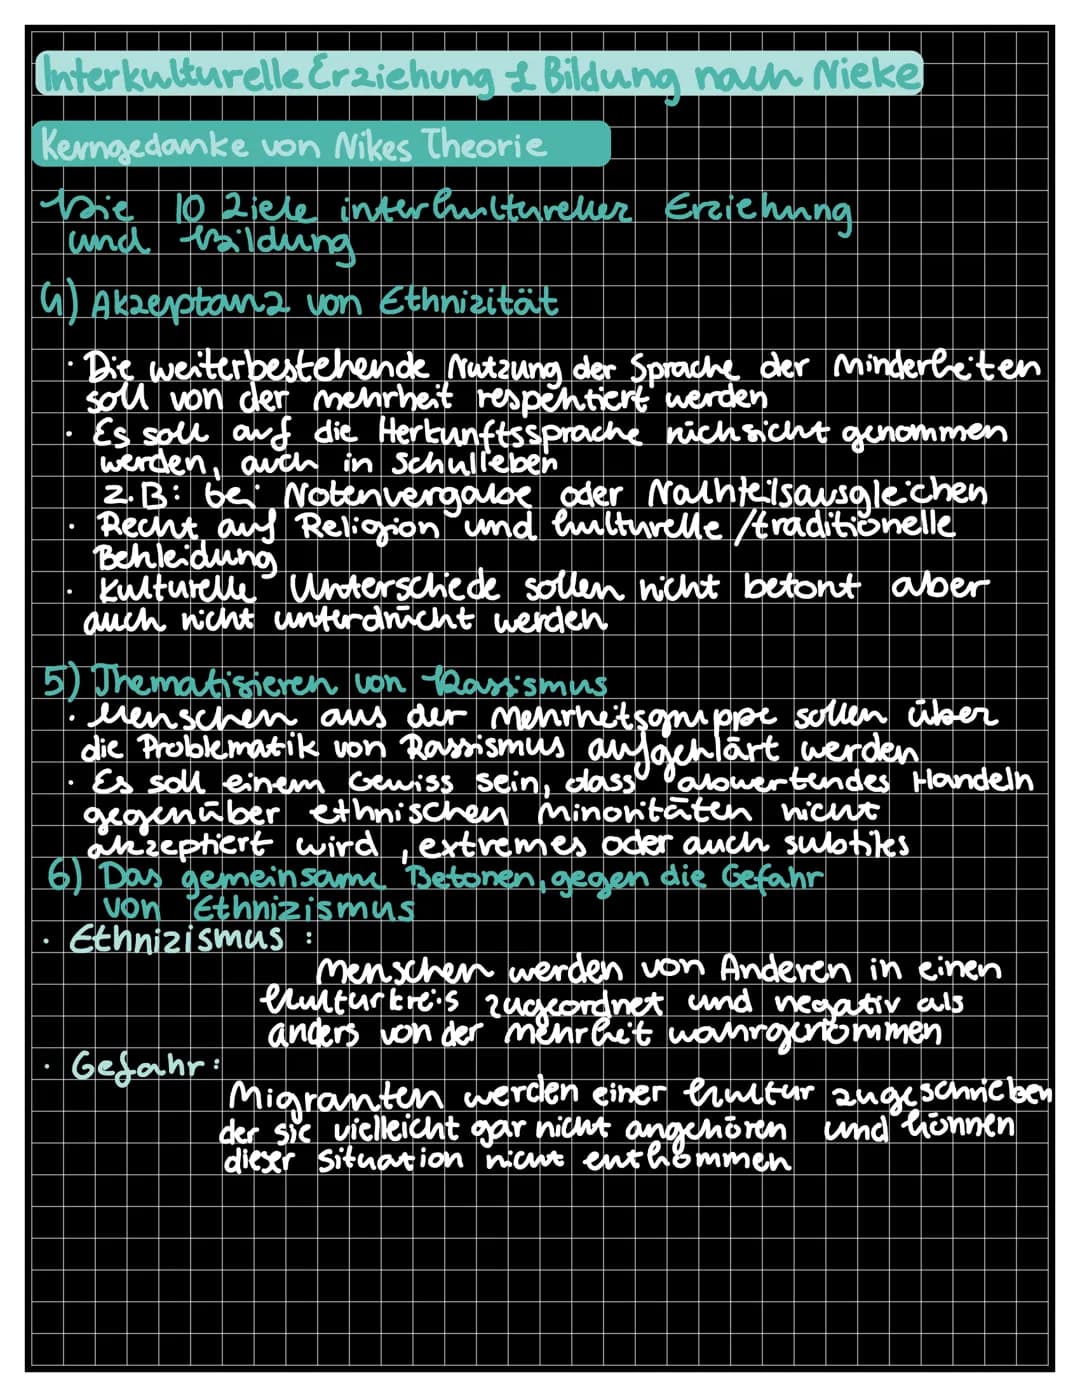 Interkulturelle Erziehung & Bildung nach Nieke
Kerngedanke von Nikes Theorie
Die 10 Ziele interkultureller Erziehung
und Bildung
4) Akzeptanz von Ethnizität
· Die weiterbestehende Nutzung der Sprache der Minderheiten
soll von der mehrheit respektiert werden
· Es soll auf die Herkunftssprache rücksicht genommen
werden, auch in Schulleben
z.B: bei Notenvergabe oder Nachteilsausgleichen
· Recht auf Religion und kulturelle/traditionelle
Bekleidung
· Kulturelle Unterschiede sollen nicht betont aber
auch nicht unterdrückt werden
5) Thematisieren von Rassismus
· Menschen aus der Mehrheitsgruppe sollen über
die Problematik von Rassismus aufgeklärt werden
· Es soll einem Gewiss sein, dass abwertendes Handeln
gegenüber ethnischen Minoritäten nicht
akzeptiert wird, extremes oder auch subtiles
6) Das gemeinsame Betonen, gegen die Gefahr
von Ethnizismus
· Ethnizismus:
Menschen werden von Anderen in einen
Kulturkreis zugeordnet und negativ als
anders von der mehrheit wahrgenommen
· Gefahr:
Migranten werden einer Kultur zugeschrieben
der sie vielleicht gar nicht angehören und können
dieser Situation nicht entkommen